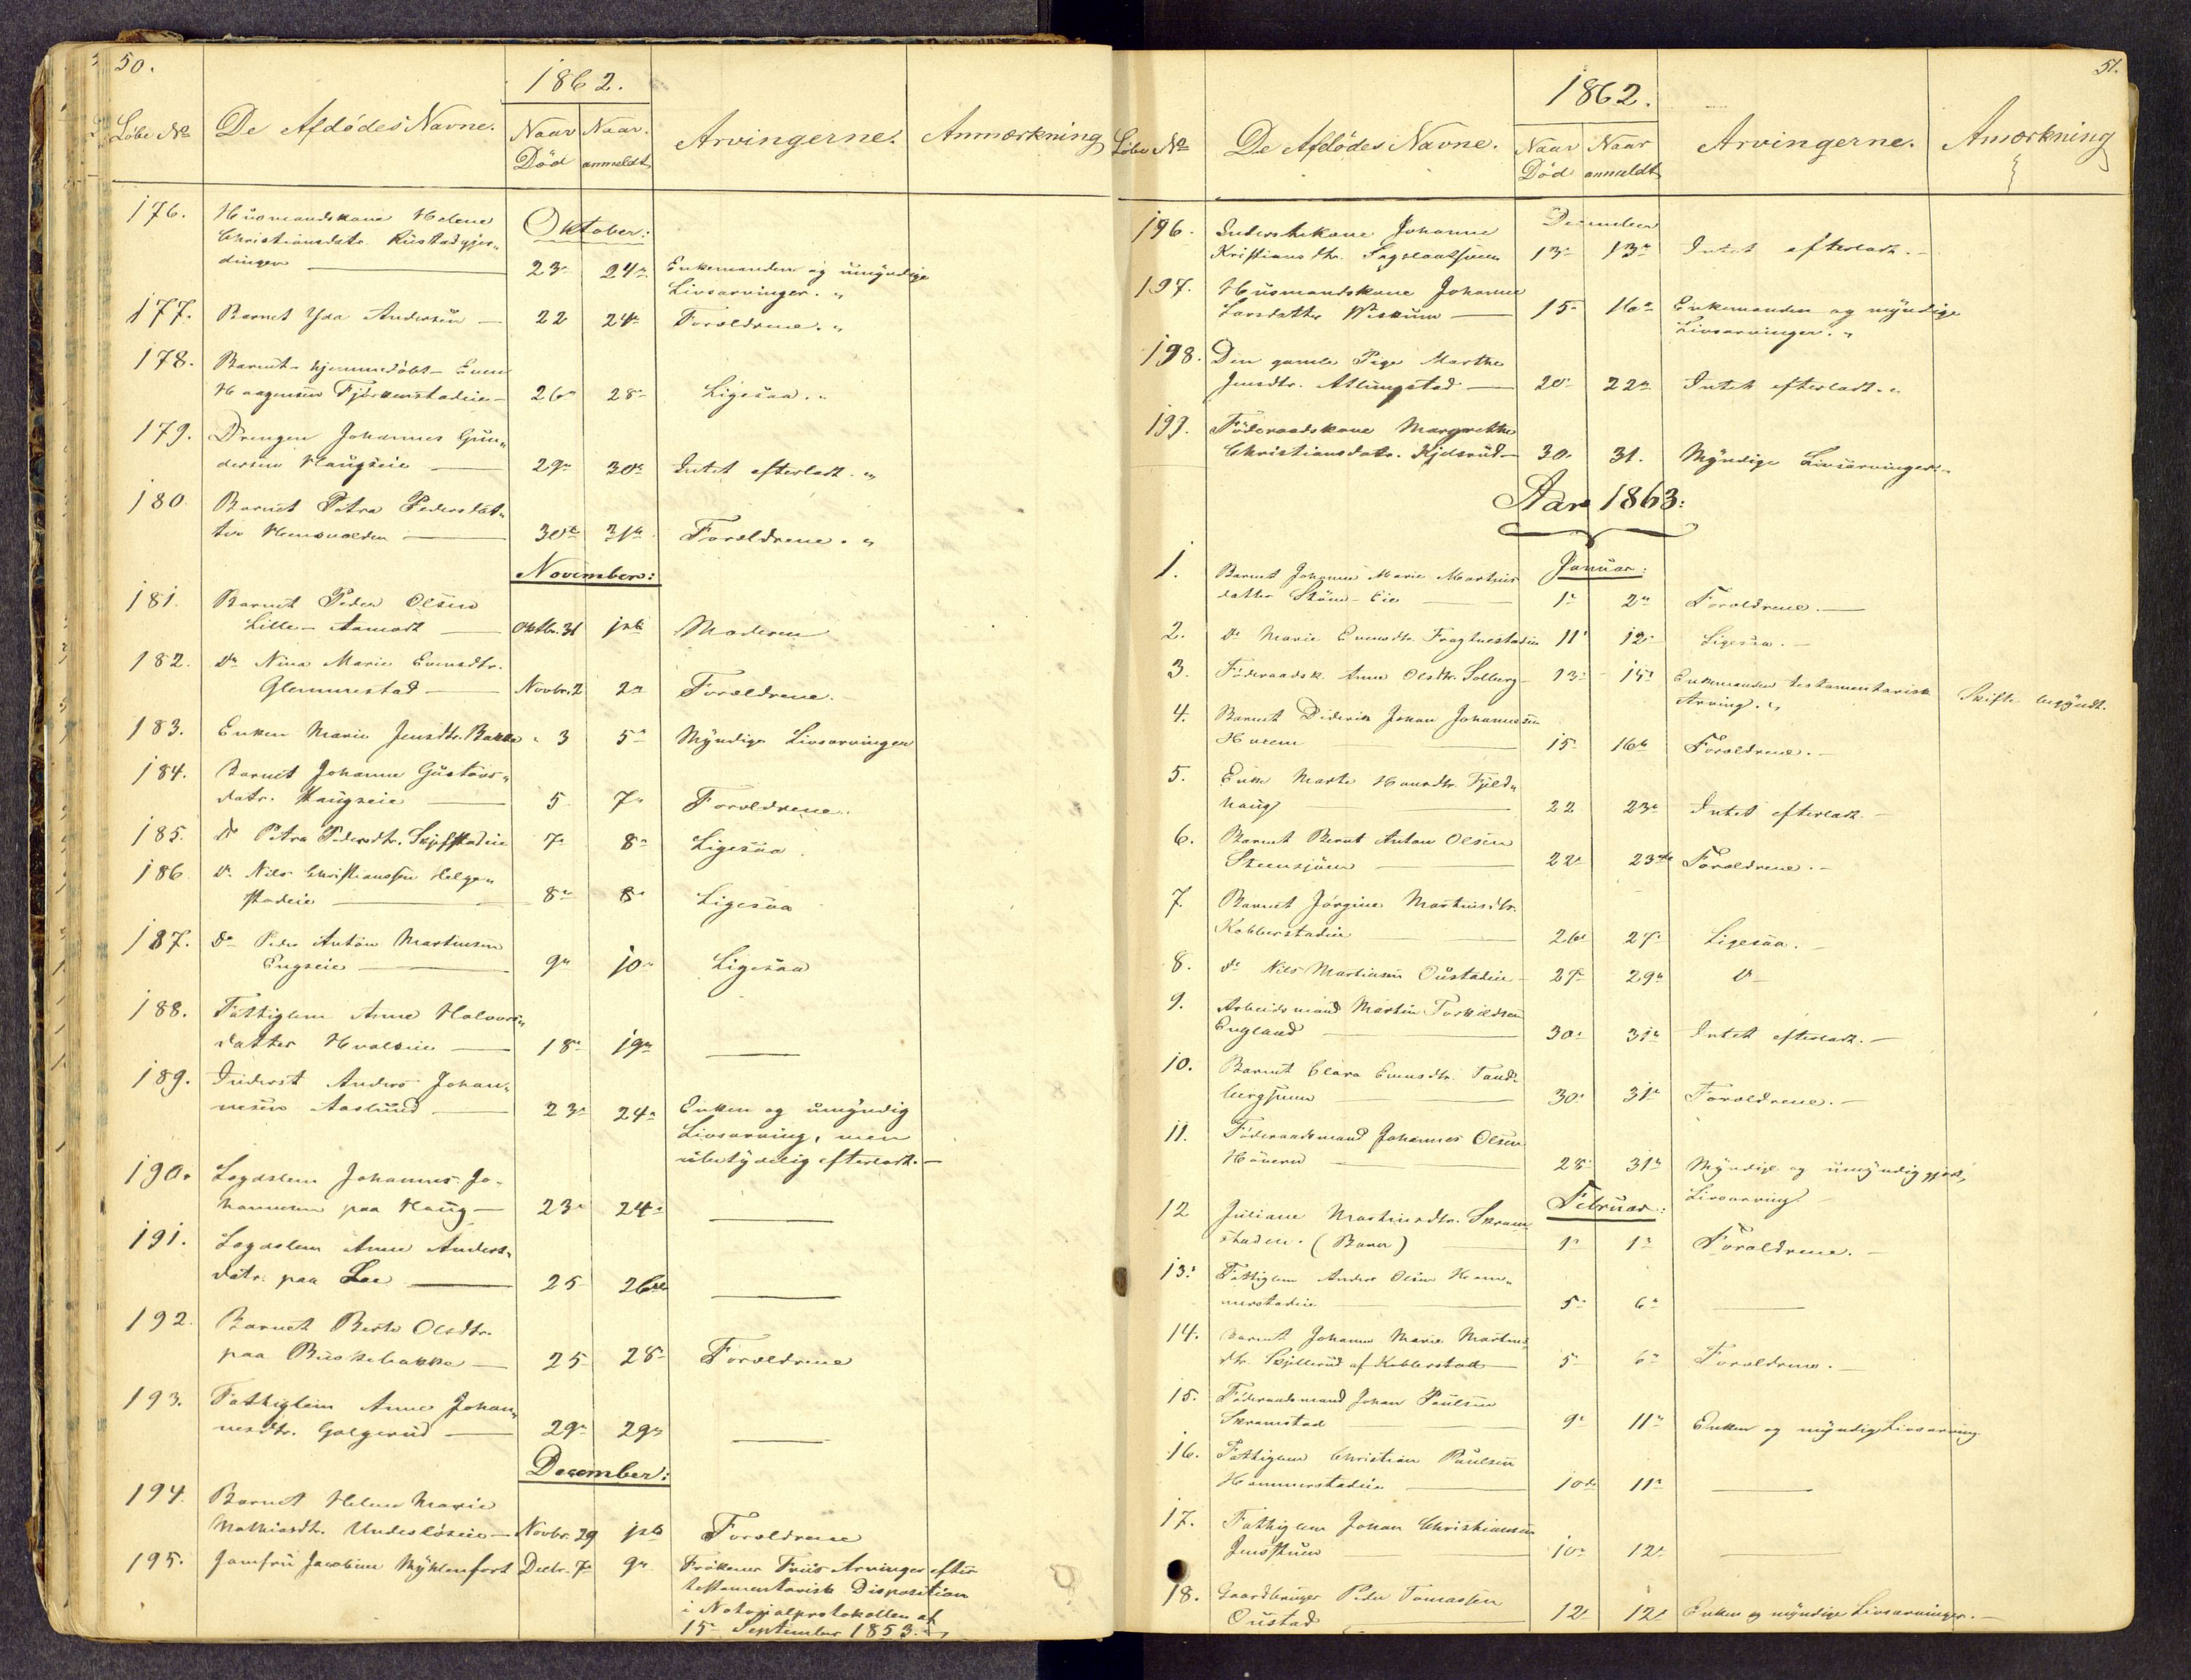 50.
1862.
Løbe No De Afdødes Navne. Naar Død Naar anmeldt Arvingerne. Anmærkning
Oktober:
176. Huusmandskone Helene
Christiansdatr. Rustadgjer-
dingen 23. 24. Enkemanden og umyndige
Livsarvinger. "
177. Barnet Ida Andersen 22 24. Forældrene. "
178. Barnet hjemmedøbt Even
Haagensen Fjørkenstadeie 26 28 Ligesaa. "
179. Drengen Johannes Gun-
dersen Haugseie 29 30 Intet efterladt. "
180. Barnet Petra Pedersdat-
ter Hemsvolden 30te 31te Forældrene. "
November:
181. Barnet Peder Olsen
Lille-Aamodt Oktbr. 31 1ste Moderen
182. Do Nina Marie Evensdtr.
Glemmestad Novbr. 2 2 Forældrene.
183. Enken Marie Jensdtr. Bakke 3 5 Myndige Livsarvinger
184. Barnet Johanne Gustavs-
datr. Haugseie 5 7 Forældrene.
185. Do Petra Pedersdtr. 7 8 Ligesaa.
186. Do Nils Christianssen Helge-
stadeie 8 8 Ligesaa
187. Do Peder Anton Martinsen
Engseie 9 10 Ligesaa
188. Fattiglem Anne Halvors-
datter Hvalseie 18 19
189. Inderst Anders Johan-
nesen Aaslund 23 24 Enken og umyndig
Livsarving, men
ubetydelig efterladt.
190. Lægdslem Johannes Jo-
hannesen paa Haug 23 24
191. Lægdslem Anne Anders-
datr. paa Lee 25 26de
192. Barnet Berte Olsdtr.
paa Buskebakke 25 28 Forældrene
193. Fattiglem Anne Johan-
nesdtr. Galgerud 29 29
December:
194. Barnet Helene Marie
Mathiasdtr. Undeslöseie Novbr. 29 1ste Forældrene
195. Jomfru Jacobine Myhlenfort Decbr. 7 9 Frøkener Friis Arvinger efter
testamentarisk Disposition
i Notarialprotokollen af
15 September 1853.
51.
1862.
Løbe No De Afdødes Navne. Naar Død Naar anmeldt Arvingerne. Anmærkning
December
196. Inderstkone Johanne
Kristiansdtr. 13 13 Intet efterladt.
197. Huusmandskone Johanne
Larsdatter Wiskum 15 16 Enkemanden og myndige
Livsarvinger. "
198. Den gamle Pige Marthe
Jensdtr. Allungstad 20 22 Intet efterladt. "
199. Föderaadskone Margrethe
Christiansdatr. Kjelsrud 30. 31. Myndige Livsarvinger.
Aar 1863:
Januar:
1. Barnet Johanne Marie Martins-
datter Steen-Eie 1 2 Forældrene.
2. Do Marie Evensdtr. 11 12 Ligesaa.
3. Föderaadsk. Anne Olsdtr. Solberg 13 15 Enkemanden testamentarisk Skifte begyndt.
Arving. "
4. Barnet Diderik Johan Johannessen
15 16 Forældrene.
5. Enke Marte Hansdtr. Fjeld-
haug 22 23 Intet efterladt.
6. Barnet Bernt Anton Olsen
Steensjöen 22 23de Forældrene.
7. Barnet Jörgine Martinsdtr.
Kobberstadeie 26 27 Ligesaa.
8. Do Nils Martinsen Oustadeie 27 29 Do
9. Arbeidsmand Martin Torkildsen
England 30 31 Intet efterladt.
10. Barnet Clara Evensdtr. Sand-
30 31 Forældrene.
11. Föderaadsmand Johannes Olsen
28 31 Myndige og umyndiggjort
Livsarving
Februar:
12 Juliane Martinsdtr. Skram-
stadeie. (Barn) 1 1 Forældrene.
13. Fattiglem Anders Olsen Ham-
merstadeie 5 6
14. Barnet Johanne Marie Martins-
dtr. Skjillerud af Kobberstad 5 6 Forældrene.
15. Föderaadsmand Johan Paulsen
Skramstad 9 11 Enken og myndig Livsarving.
16. Fattiglem Christian Paulsen
Hammerstadeie 10de 11
17. Fattiglem Johan Christiansen
10 12
18. Gaardbruger Peder Tomassen
Oustad 12 12 Enken og myndige Livsarvinger.